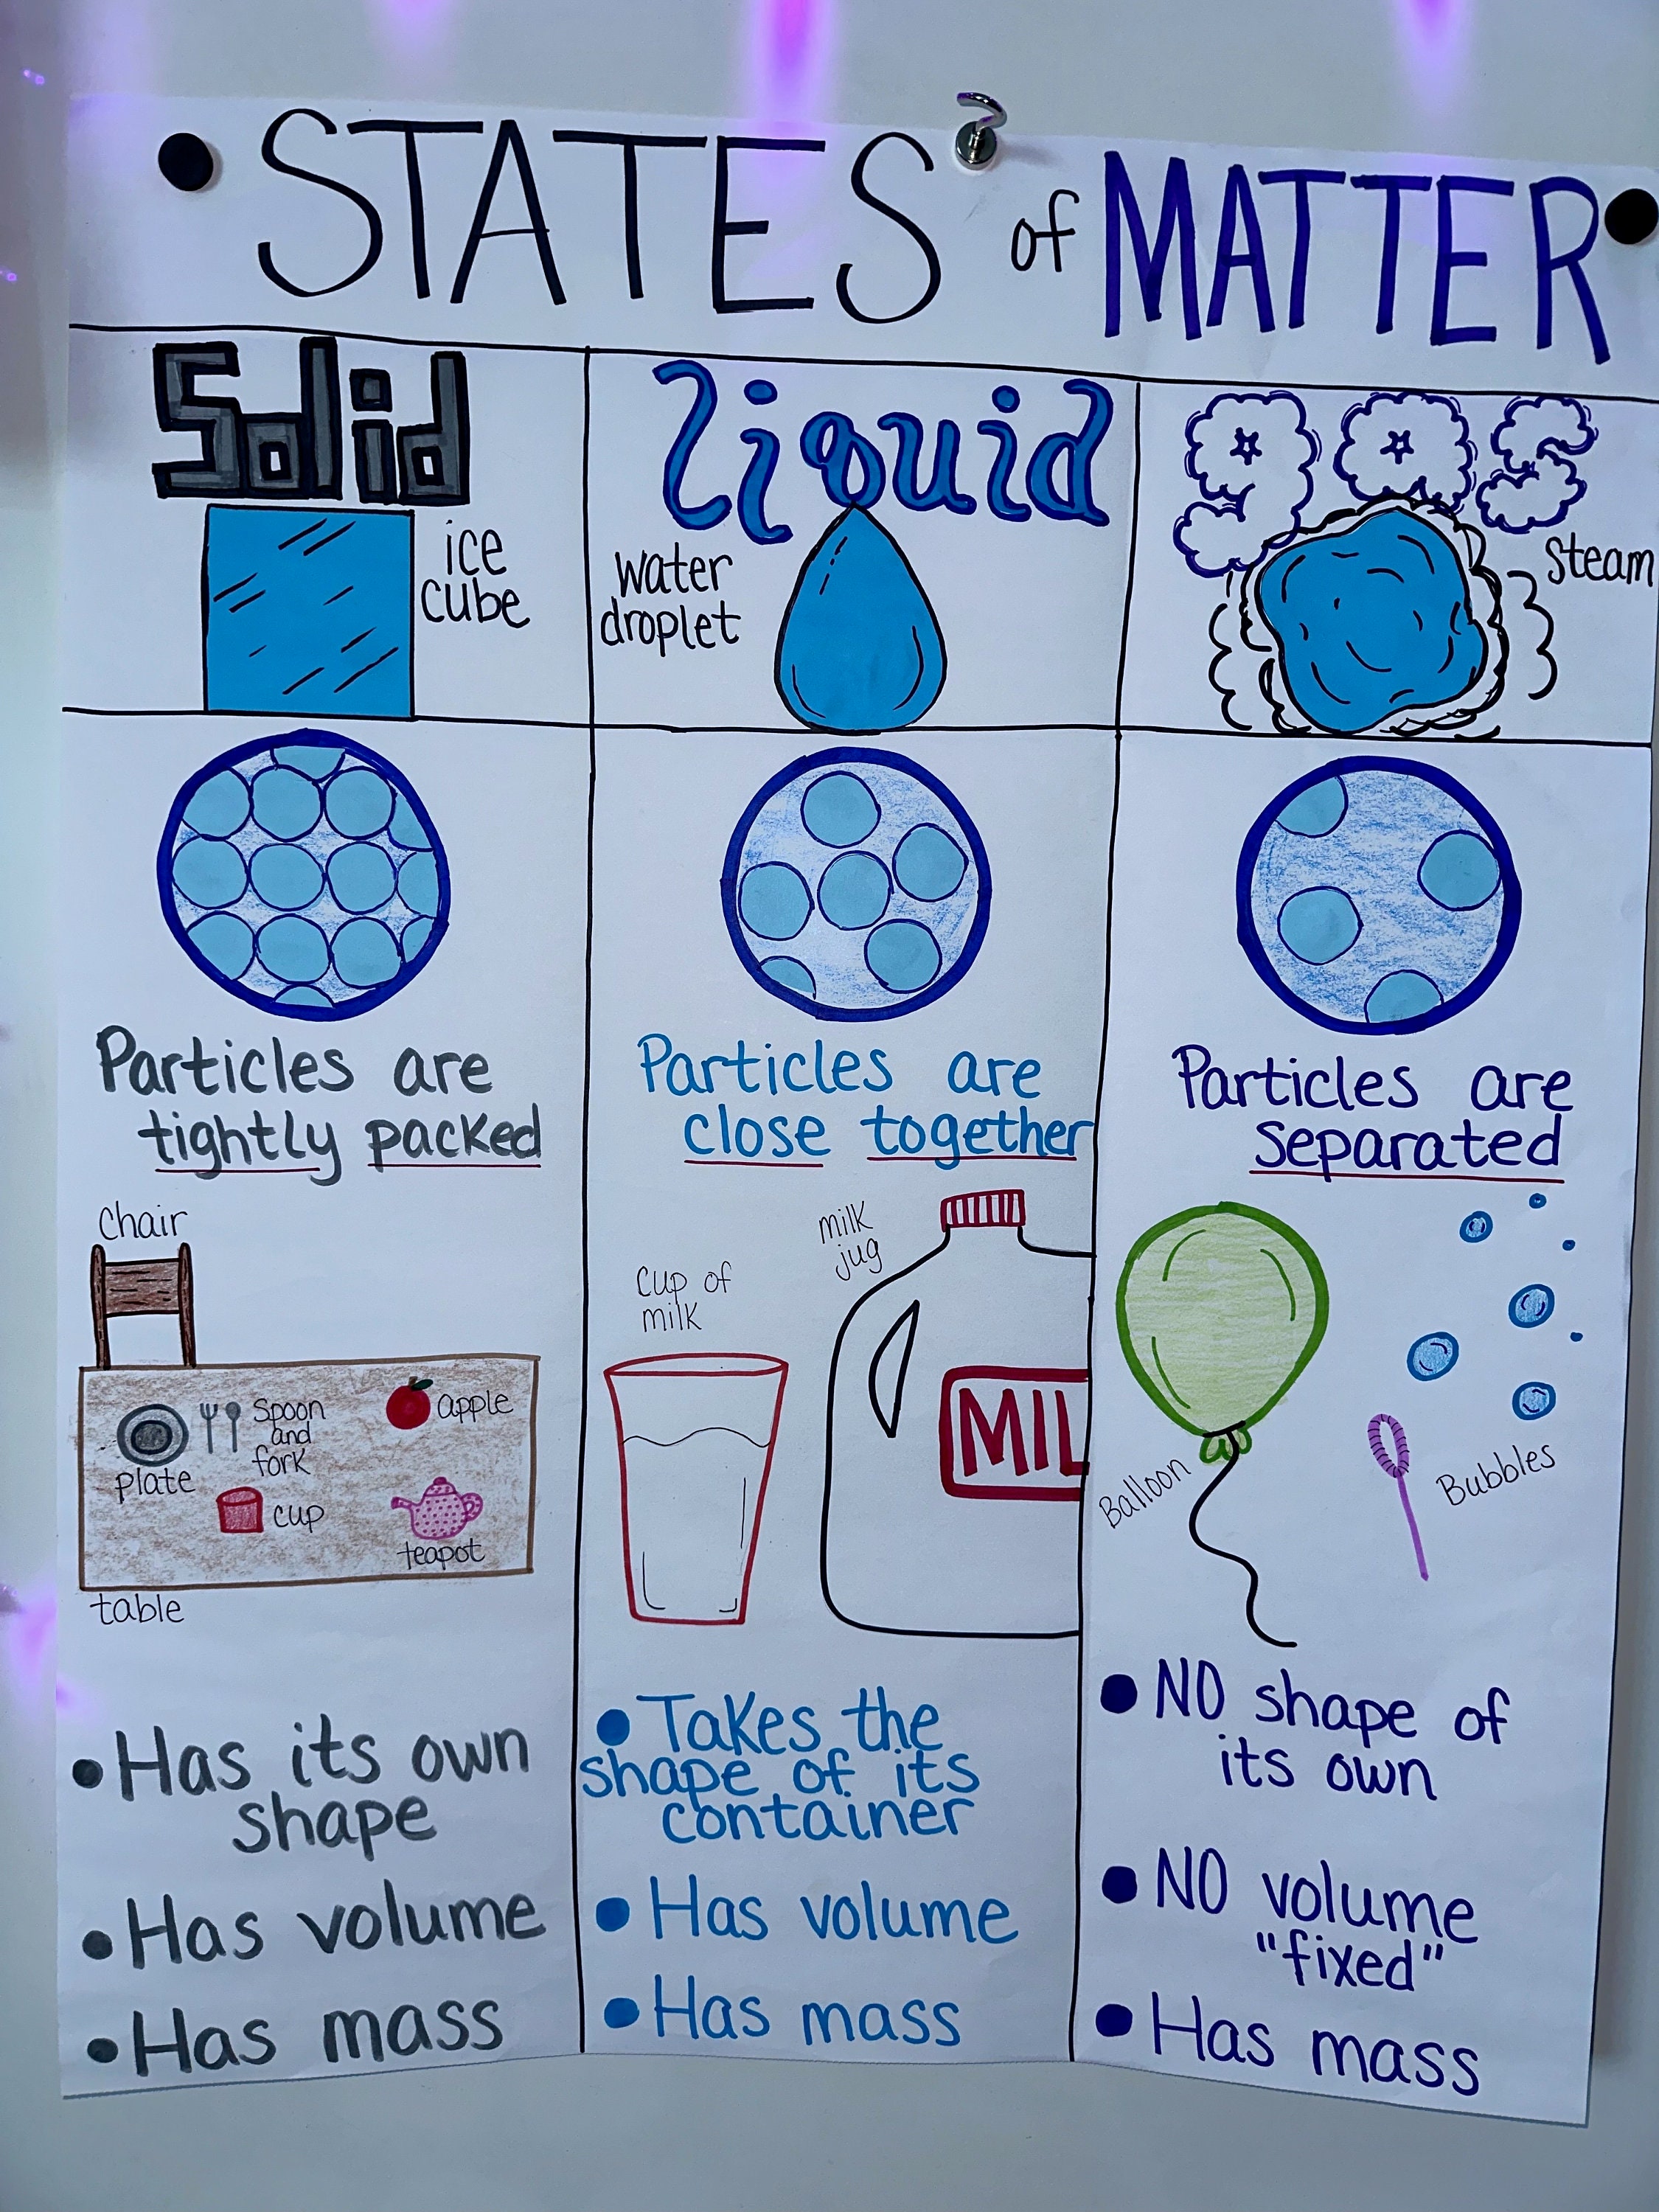 STATES of MATTER
Solid
ice
cube
Liquid
water
droplet
gas
steam
Particles are
tightly packed
Particles are
close together
Particles are
separated
Chair
plate
Spoon
and
fork
apple
cup
teapot
table
cup of
milk
milk
jug
MIL
Balloon
Bubbles
• Has its own
shape
• Has volume
• Has mass
• Takes the
shape of its
container
• Has volume
• Has mass
• NO shape of
its own
• NO volume
"fixed"
• Has mass